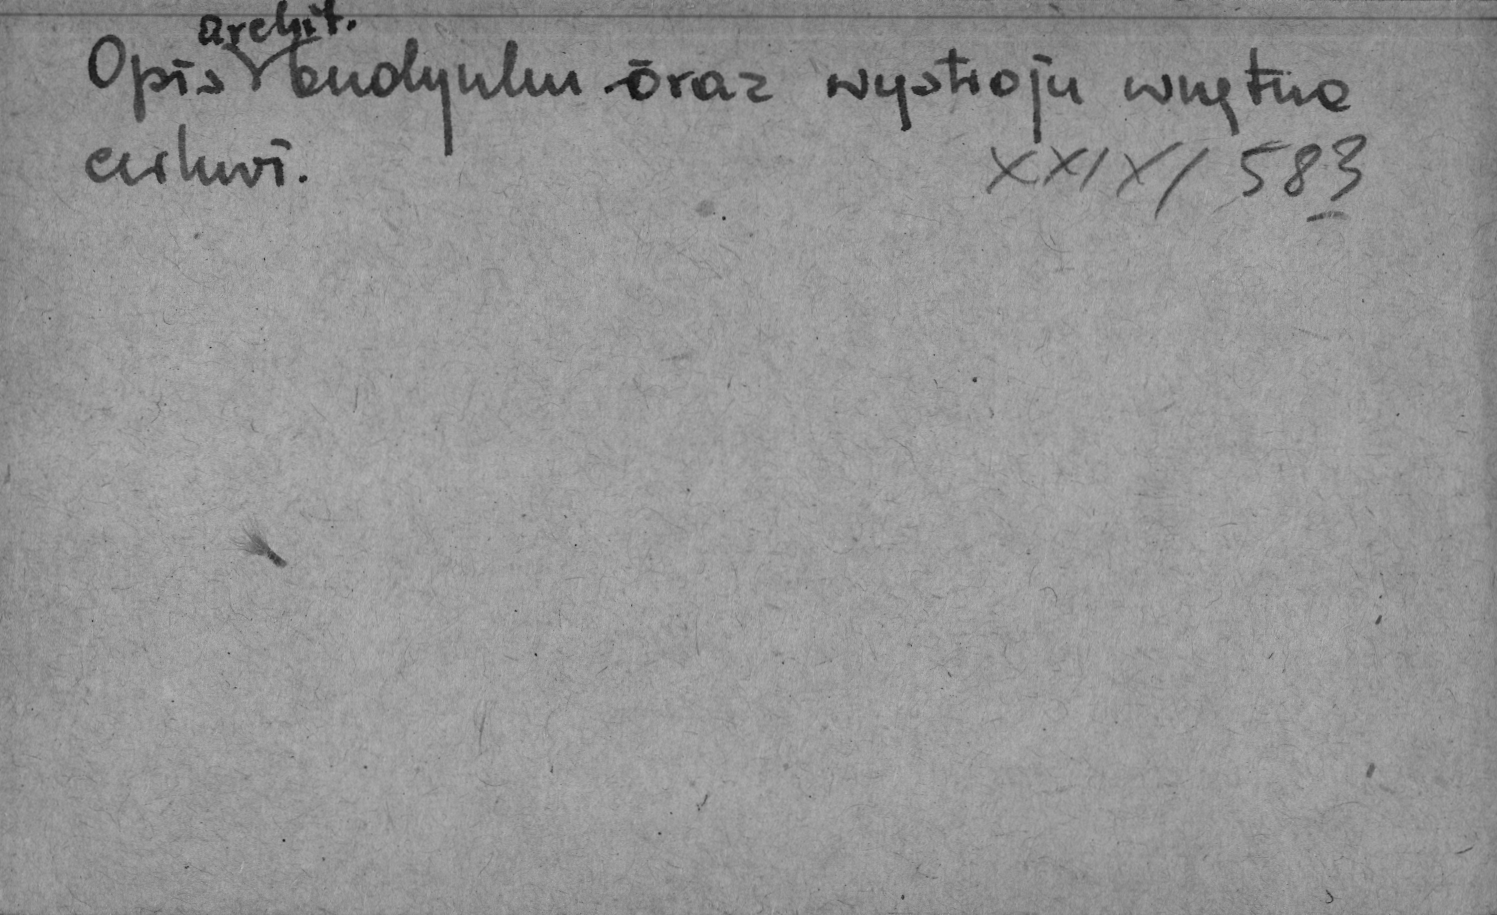 Opis archit. budynku oraz wystroju wnętrza
cerkwi.
XXIX/583